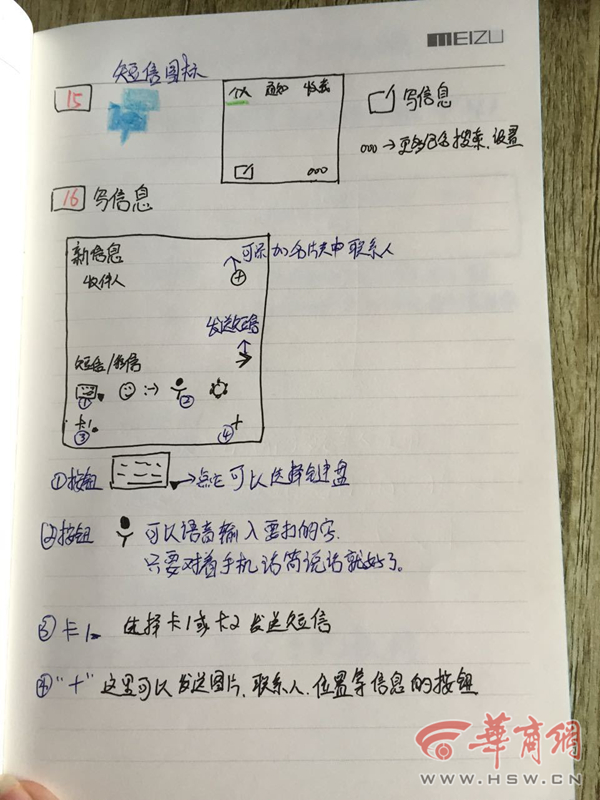 MEIZU
短信图标
15
个人 通知 收藏
写信息
000→更多包含搜索、设置
000
16 写信息
新信息
可添加名片夹中联系人
收件人
+
发送短信
短信/彩信
① :→ ②
卡1
③ ④ +
①按钮 →点它可以选择键盘
②按钮 可以语音输入要打的字.
只要对着手机话筒说话就好了。
③卡1 选择卡1或卡2发送短信
④“+”这里可以发送图片、联系人、位置等信息的按钮
華商網
WWW.HSW.CN